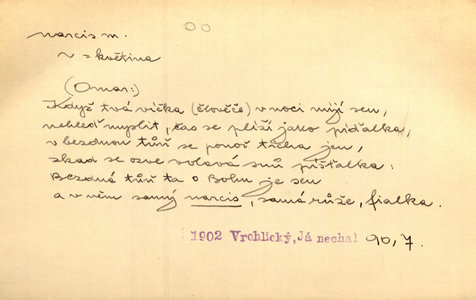 narcis m.
v s květina
(Omar:)
Když tvá víčka (člověče) v noci mijí sen,
nehleď myslit, čas se plíží jako píďalka,
v bezdnou tůň se ponoř třeba jen,
zkad se ozve volavá snů píšťalka:
Bezdná tůň ta o Bohu je sen
a v něm samý narcis, samá růže, fialka.
1902 Vrchlický, Já nechal 90, 7.